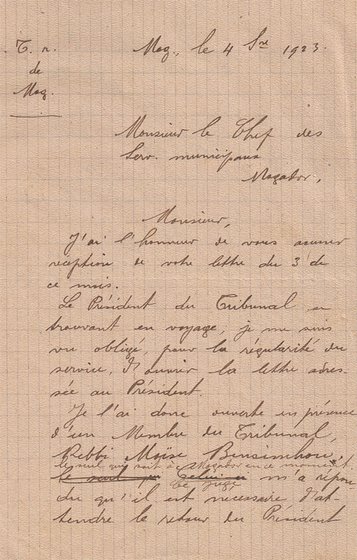 T. r.
de
Mog.
Mog., le 4 Sre 1923.
Monsieur le Chef des
Serv. municipaux
Mogador,
Monsieur,
J'ai l'honneur de vous accuser
réception de votre lettre du 3 de
ce mois.
Le Président du Tribunal se
trouvant en voyage, je me suis
vu obligé, pour la régularité du
service, d'ouvrir la lettre adres-
sée au Président.
Je l'ai donc ouverte en présence
d'un Membre du Tribunal,
Rebbi Moïse Bensimhon,
le seul qui soit à Mogador en ce moment.
Ce juge m'a répon-
du qu'il est nécessaire d'at-
tendre le retour du Président